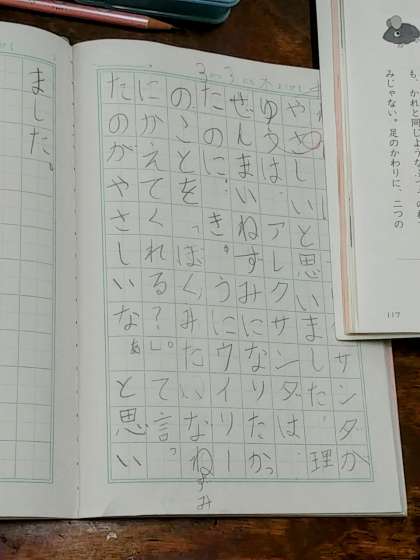 も、かれと同じような
みじゃない。足のかわりに、二つの
117
サンダが
やさしいと思いました。理
ゆうは、アレクサンダは、
ぜんまいねずみになりたかっ
たのに、きゅうにウイリー
のことを「ぼくみたいなねずみ
にかえてくれる?」。て言っ
たのがやさしいなぁと思い
ました。